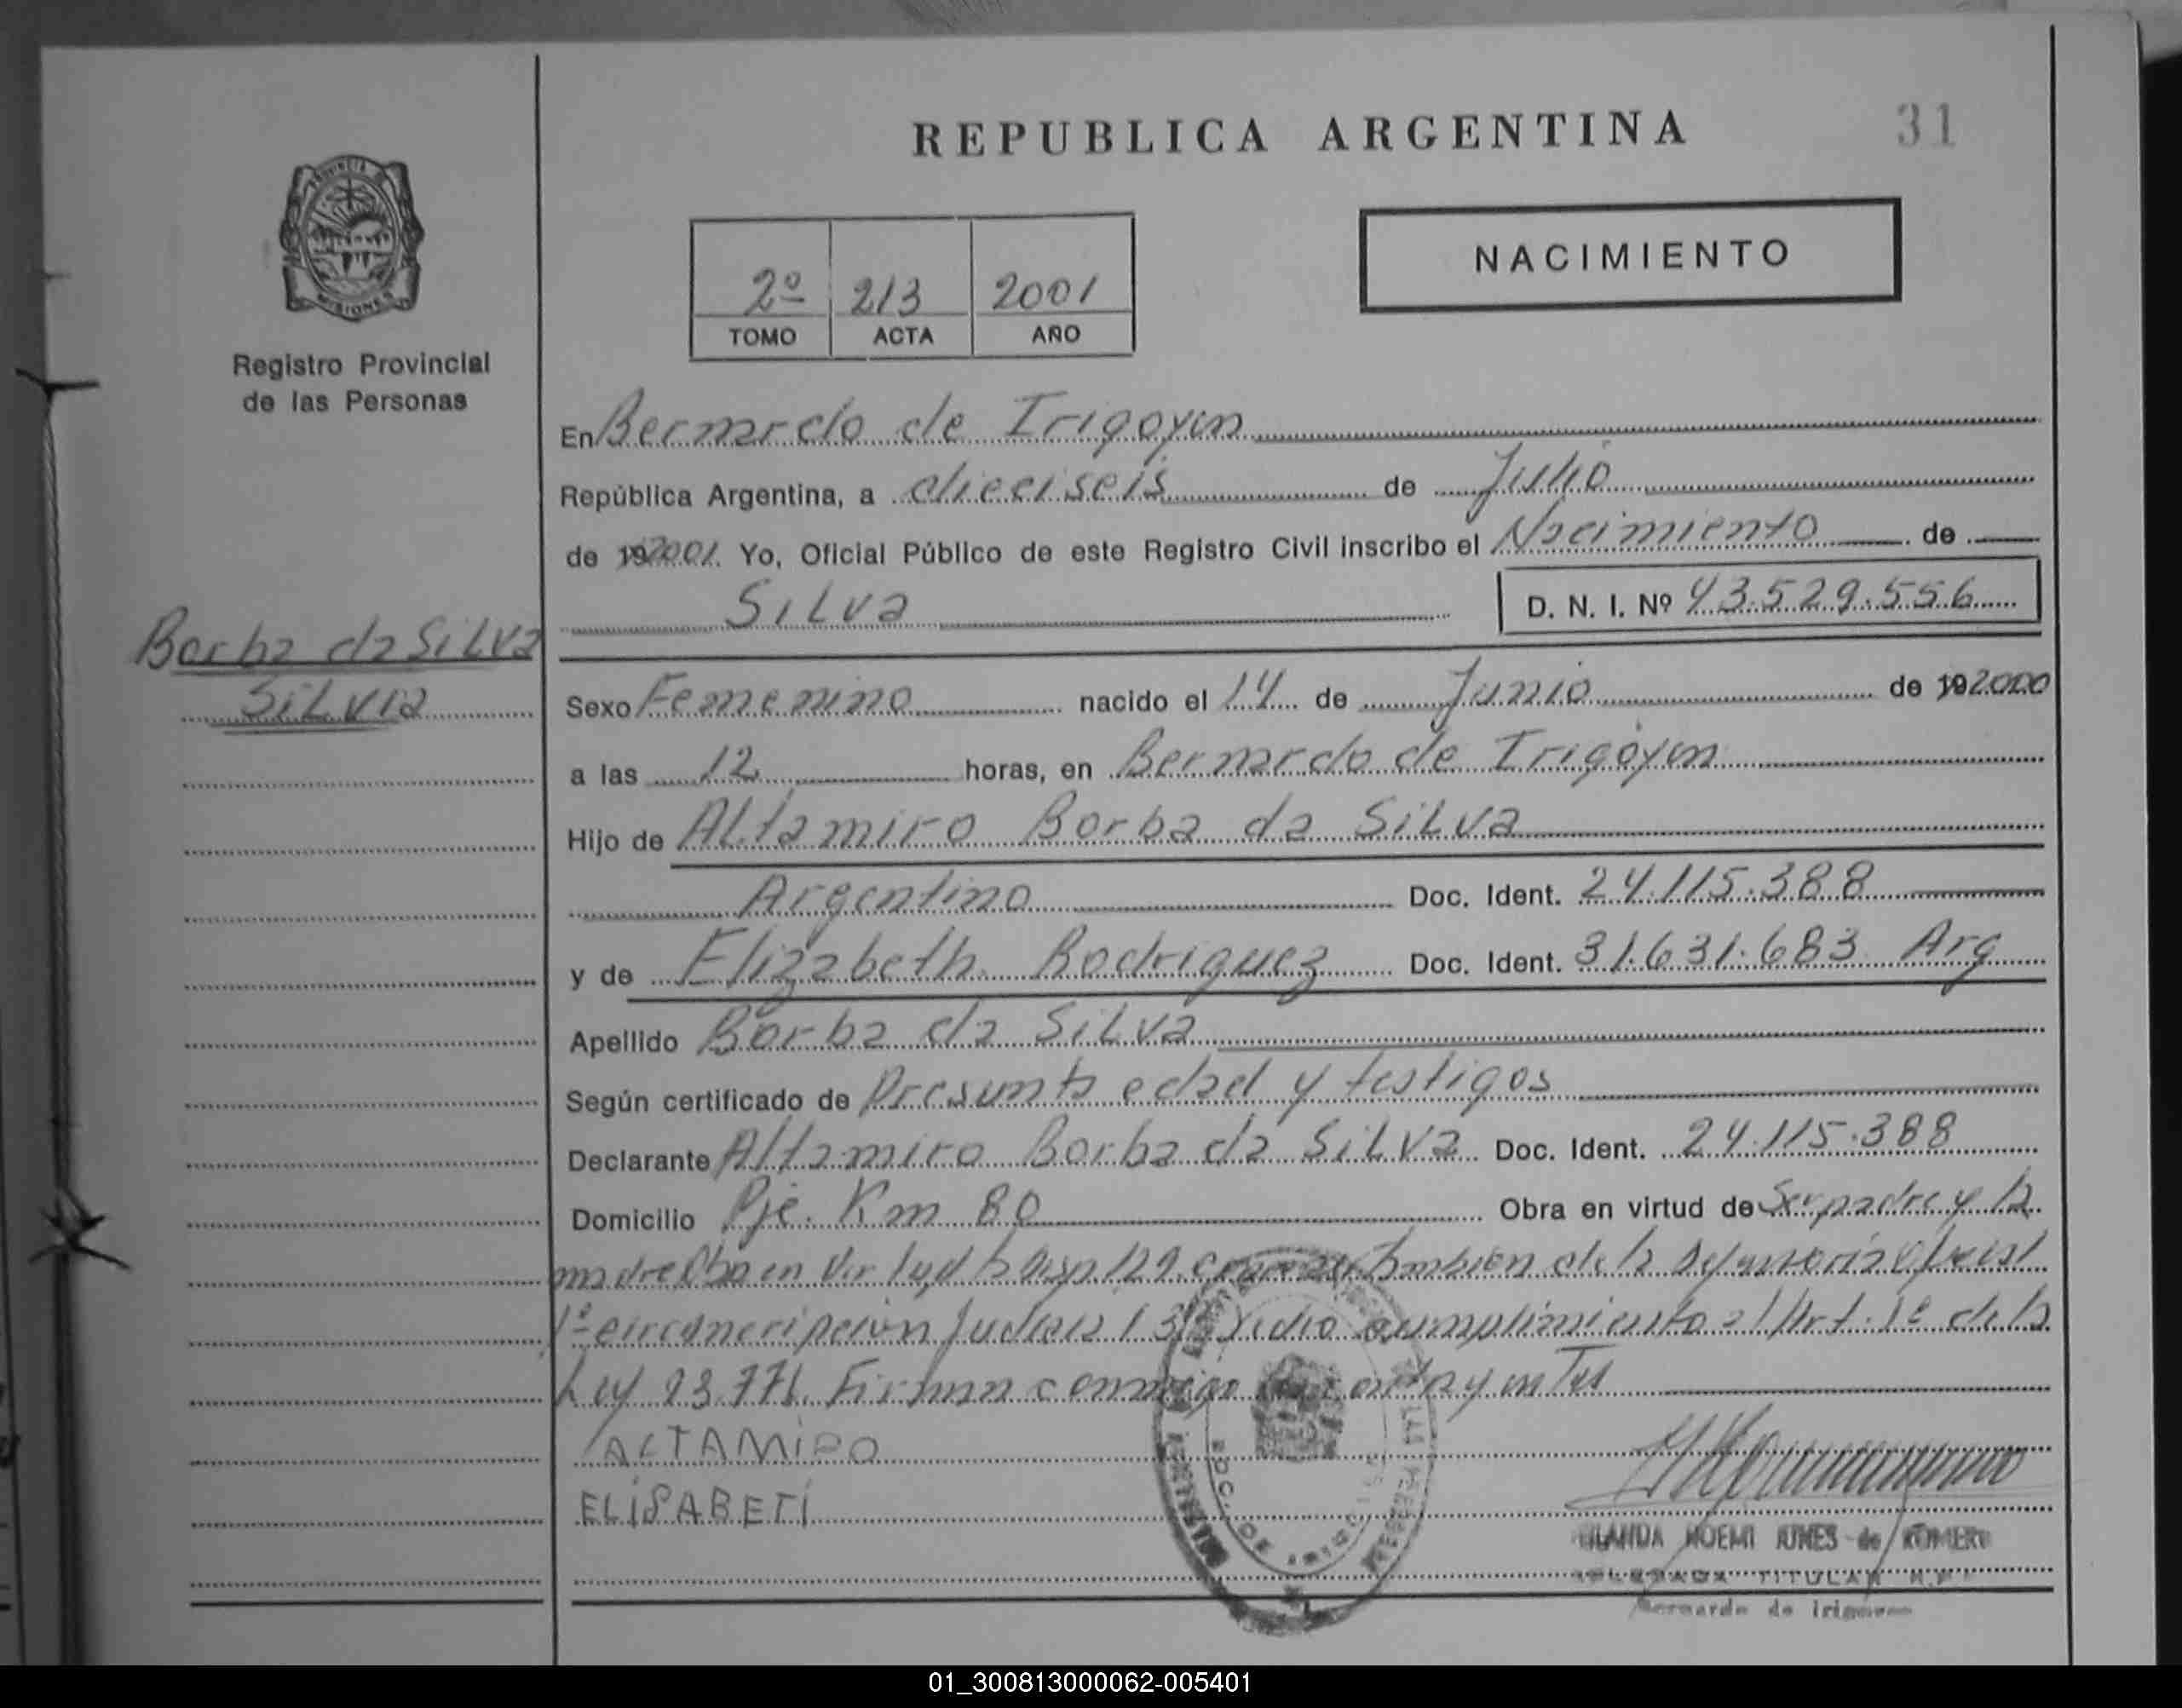 REPUBLICA ARGENTINA
31
PROVINCIA DE
MISIONES
Registro Provincial
de las Personas
2º 213 2001
TOMO ACTA AÑO
NACIMIENTO
En Bernardo de Irigoyen
República Argentina, a dieciseis de Julio
de 192001. Yo, Oficial Público de este Registro Civil inscribo el Nacimiento de
Silva
D. N. I. Nº 43.529.556
Borba da Silva
Silvia
Sexo Femenino nacido el 14 de Junio de 192000
a las 12 horas, en Bernardo de Irigoyen
Hijo de Altamiro Borba da Silva
Argentino Doc. Ident. 24.115.388
y de Elizabeth Rodriguez Doc. Ident. 31.631.683 Arg
Apellido Borba da Silva
Según certificado de Presunta edad y testigos
Declarante Altamiro Borba da Silva Doc. Ident. 24.115.388
Domicilio Pje. Km 80 Obra en virtud de Ser padre y la
madre Obra en Virtud la Disp 129 tambien de la
1º circuncripcion Judicial dio cumplimiento al Art. 1º de la
Ley 23.776. Firman conmigo
ALTAMIRO
ELISABETI
NOEMI JONES de ROMERO
TITULAR
Bernardo de Irigoyen
01_300813000062-005401